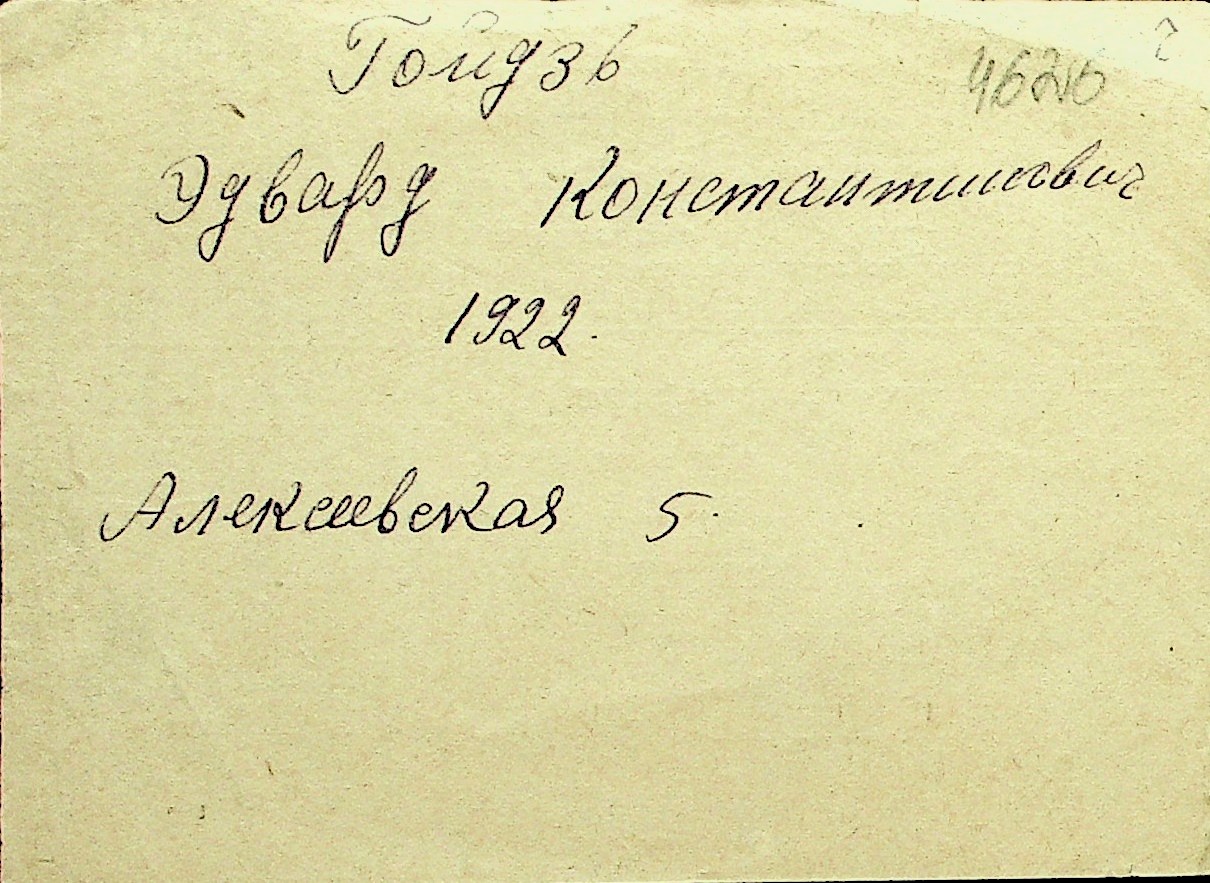 Гойдзь
Эдвард Константинович
1922.
Алексеевская 5.